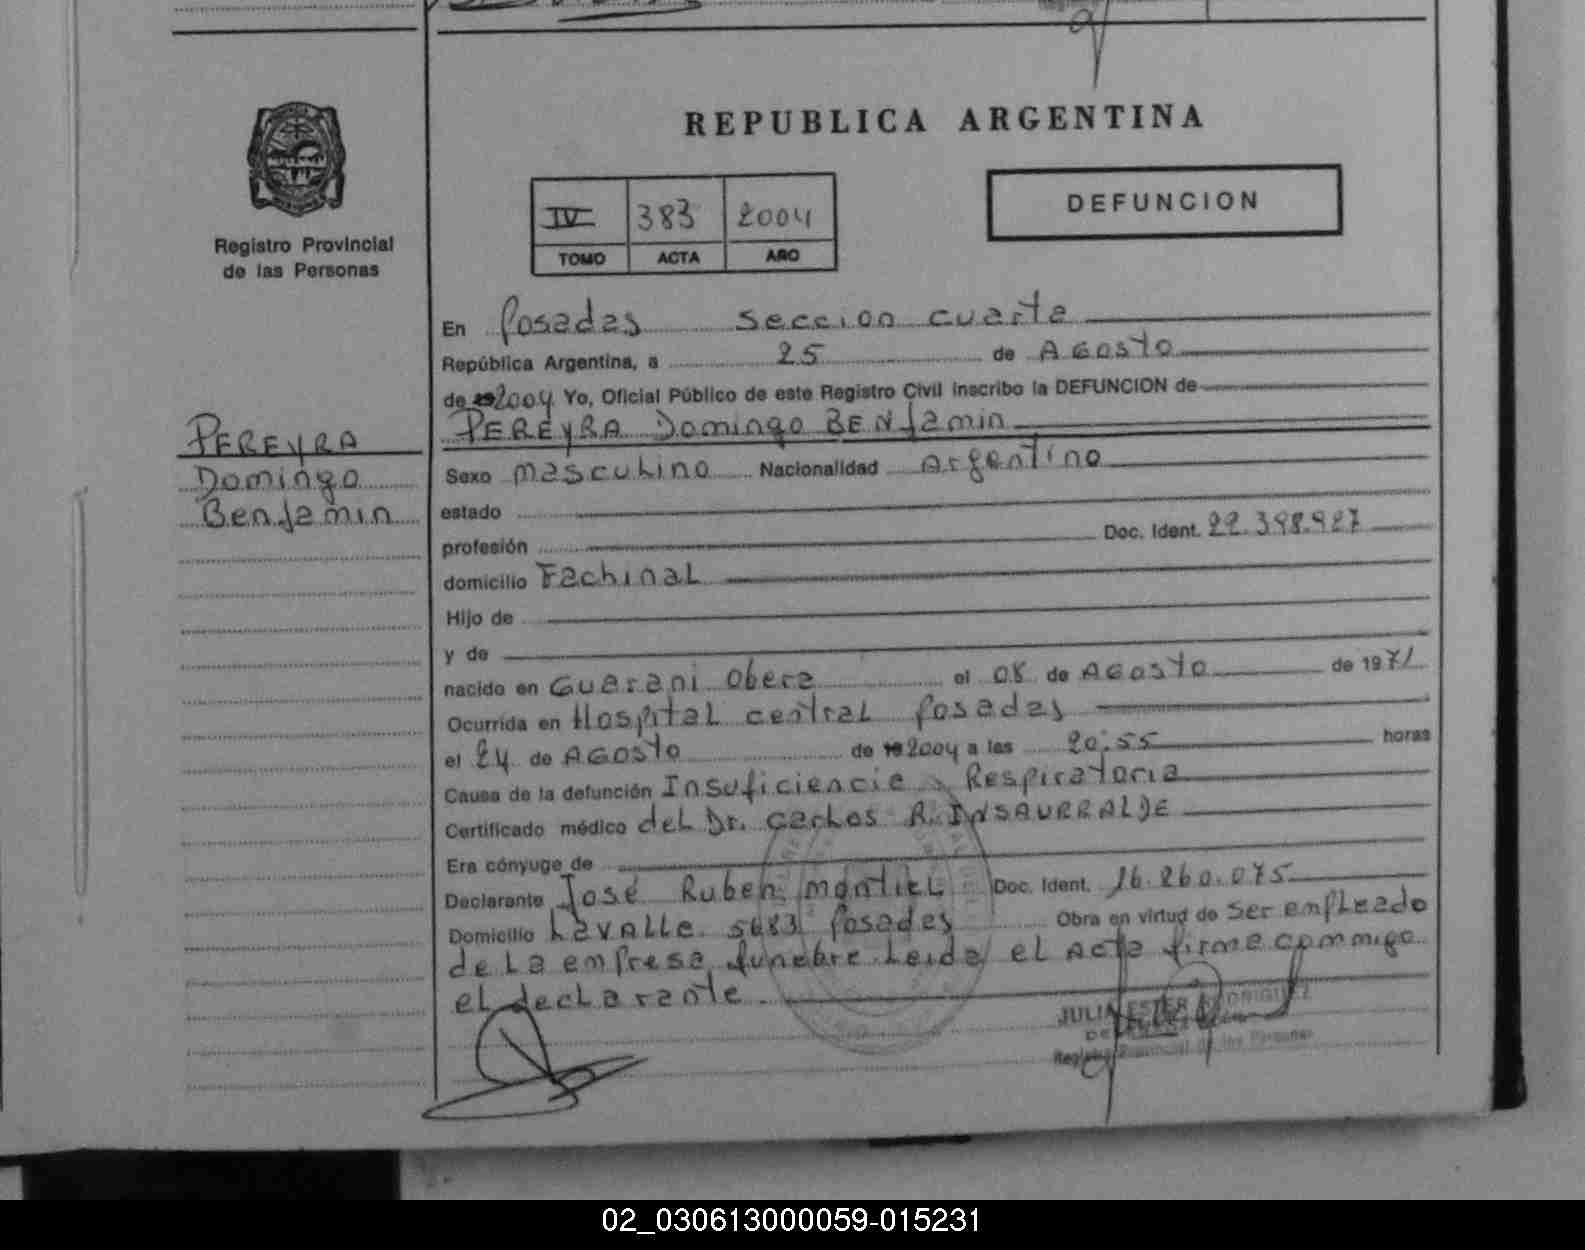 REPUBLICA ARGENTINA
Registro Provincial
de las Personas
IV 383 2004
TOMO ACTA AÑO
DEFUNCION
PEREYRA
Domingo
Benjamin
En Posadas Seccion cuarta
República Argentina, a 25 de AGosto
de 2004 Yo, Oficial Público de este Registro Civil inscribo la DEFUNCION de
PEREYRA Domingo BENJamin
Sexo masculino Nacionalidad Argentino
estado
profesión Doc. Ident. 22.398.927
domicilio Fachinal
Hijo de
y de
nacido en Guarani Obera el 08 de AGosto de 1971
Ocurrida en Hospital central Posadas
el 24 de AGosto de 2004 a las 20:55 horas
Causa de la defunción Insuficiencia Respiratoria
Certificado médico del Dr. Carlos A. INSAURRALDE
Era cónyuge de
Declarante José Ruben Montiel Doc. Ident. 16.260.075
Domicilio Lavalle 5683 Posadas Obra en virtud de ser empleado
de la empresa funebre Leida el Acta firma conmigo
el declarante.
JULIA ESTER RODRIGUEZ
Registro Provincial de las Personas
02_030613000059-015231